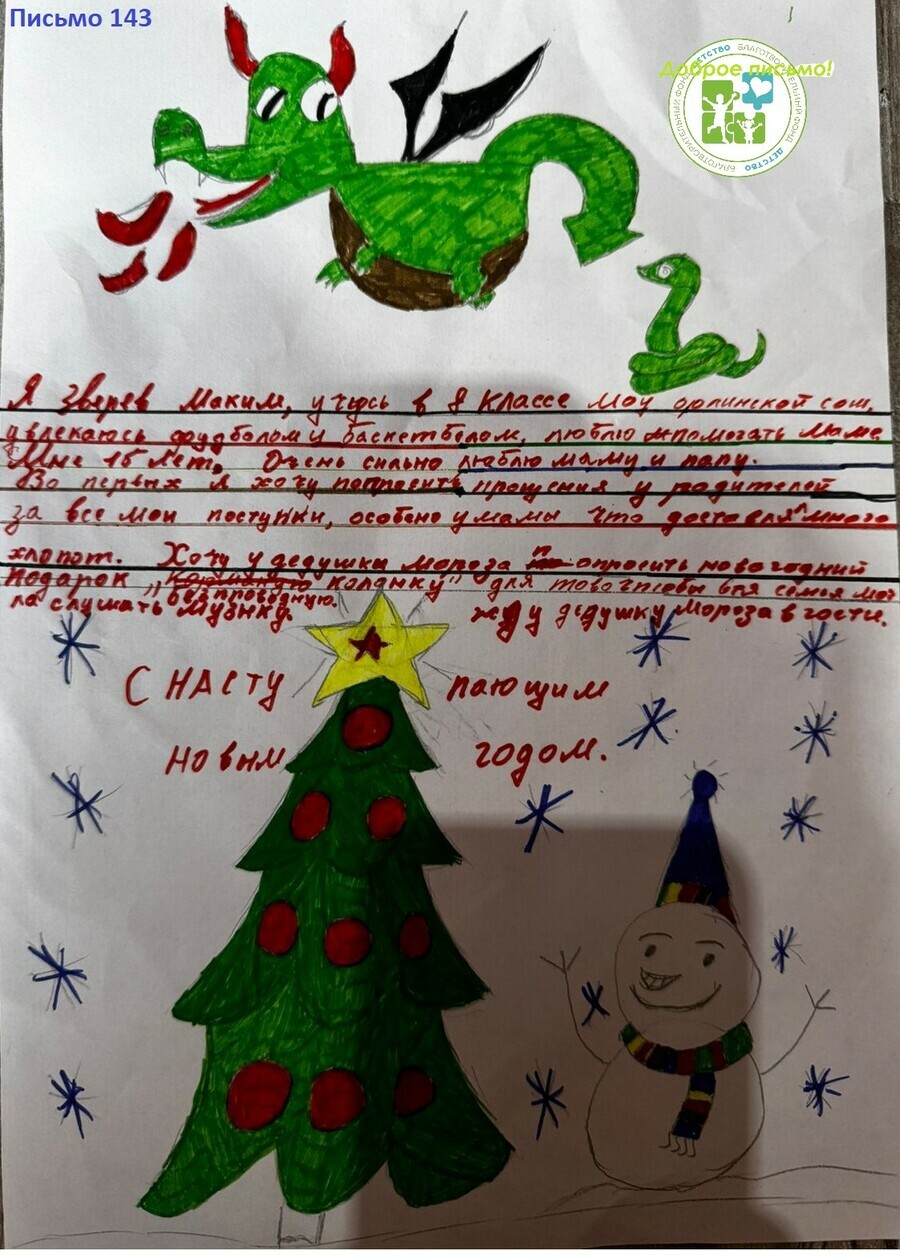 Письмо 143
Доброе письмо!
БЛАГОТВОРИТЕЛЬНЫЙ ФОНД ДЕТСТВО БЛАГОТВОРИТЕЛЬНЫЙ ФОНД ДЕТСТВО
Я Зверев Маким, учусь в 8 классе Моу орлинской сош,
увлекаюсь фудболом и баскетболом, люблю помогать маме
Мне 15 лет. Очень сильно люблю маму и папу.
Во первых я хочу попросить прощения у родителей
за все мои поступки, особено у мамы что доставля много
хлопот. Хочу у дедушки мороза попросить новогодний
Подарок „ колонку" для что бы вся семья мог
безпроводную.
ла слушать музыку. жду дедушку мороза в гости.
С НАСТУ пающим
новым годом.